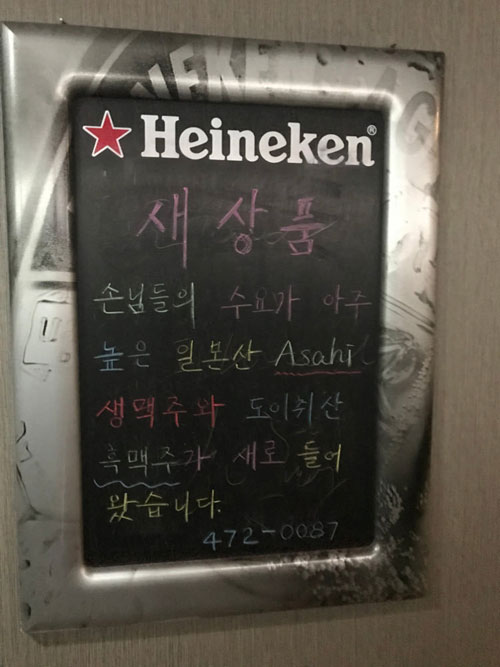 Heineken®
새 상 품
손님들의 수요가 아주
높은 일본산 Asahi
생맥주와 도이취산
흑맥주가 새로 들어
왔습니다.
472-0087